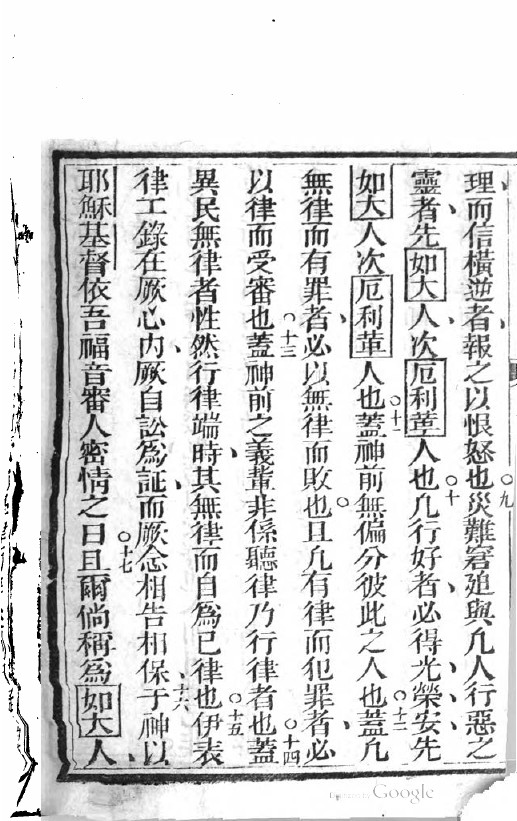 理而信橫逆者報之以恨怒也○九災難窘廹與凢人行惡之
靈者先如大人次厄利革人也○十凢行好者必得光榮安先
如大人次厄利革人也○十一蓋神前無偏分彼此之人也○十二蓋凢
無律而有罪者必以無律而敗也○且凢有律而犯罪者必
以律而受審也○十三蓋神前之義輩非係聽律乃行律者也○十四蓋
異民無律者性然行律端時其無律而自為己律也○十五伊表
律工錄在厥心內厥自訟為証而厥念相告相保于○十六神以
耶穌基督依吾福音審人密情之日○十七且爾倘稱為如大人
Digitized by Google